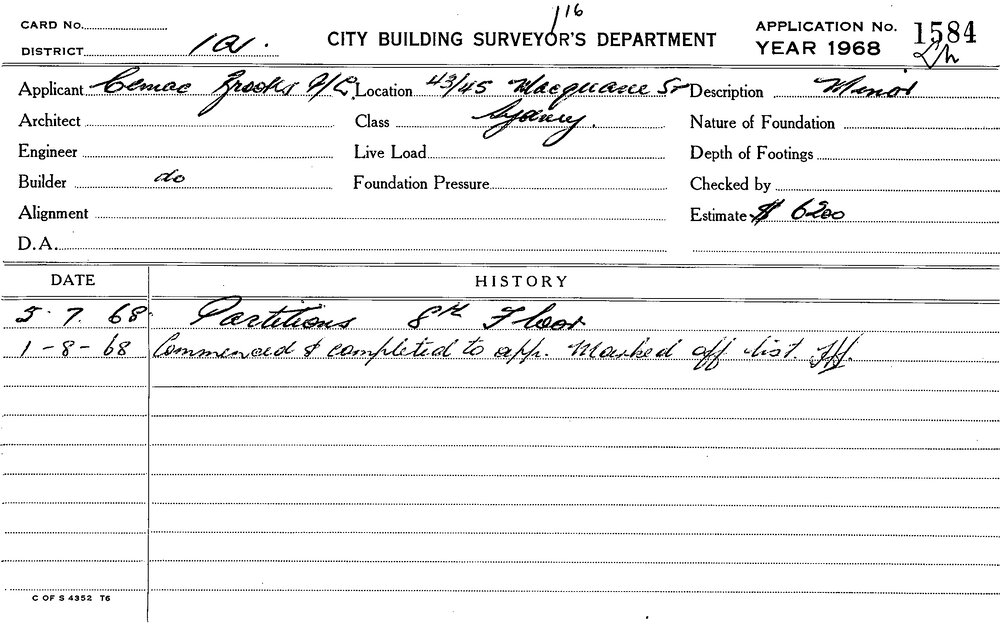 116
CARD No. APPLICATION No. 1584
DISTRICT 1a. CITY BUILDING SURVEYOR'S DEPARTMENT YEAR 1968
Applicant Cemac Brooks P/L. Location 43/45 Macquarie St Description Minor
Architect Class Sydney. Nature of Foundation
Engineer Live Load Depth of Footings
Builder do Foundation Pressure Checked by
Alignment Estimate $ 6200
D.A.
DATE HISTORY
5.7.68 Partitions 8th Floor
1-8-68 Commenced & completed to app. Marked off list
C OF S 4352 T6